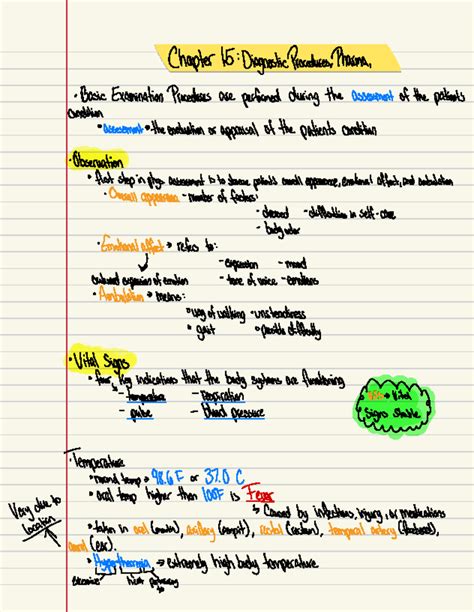 Chapter 15: Diagnostic Procedures, Pharma,
• Basic Examination Procedures are performed during the assessment of the patient's
condition
• assessment → the evaluation or appraisal of the patients condition
• Observation
• first step in phys assessment is to observe patients overall appearance, emotional affect, and ambulation
• Overall appearance - number of factors:
- dressed - difficulties in self-care
- body odor
• Emotional affect → refers to:
- expression - mood
outward expression of emotion - tone of voice - emotions
• Ambulation → means:
• way of walking • unsteadiness
• gait • possible difficulty
• Vital Signs
• four key indications that the body systems are functioning
- temperature - Respiration
- pulse - Blood pressure
VSS → Vital
Signs Stable
• Temperature
• normal temp → 98.6 F or 37.0 C
• oral temp higher than 100F is Fever
↳ Caused by infections, injury, or medications
Vary due to
location
• taken in oral (mouth), axillary (armpit), rectal (rectum), temporal artery (forehead),
aural (ear).
• Hyperthermia → extremely high body temperature
excessive heat